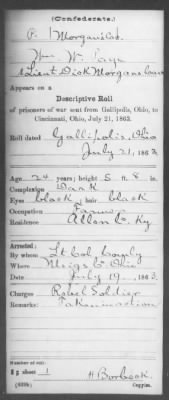 (Confederate.)
P. | Morgan's Cav.
Wm. W. Page
Lieut. Dick Morgans Cav
Appears on a
Descriptive Roll
of prisoners of war sent from Gallipolis, Ohio, to
Cincinnati, Ohio, July 21, 1863.
Roll dated
Gallipolis, Ohio
July 21, 1863.
Age 24 years; height 5 ft. 8 in.
Complexion Dark
Eyes black; hair black
Occupation Farmer
Residence Allen Co. Ky
Arrested:
By whom Lt Col
Where Meigs Co Ohio
When July 19, 1863.
Charges Rebel Soldier
Remarks: Taken in action
Number of roll:
8; sheet 1
Copyist.